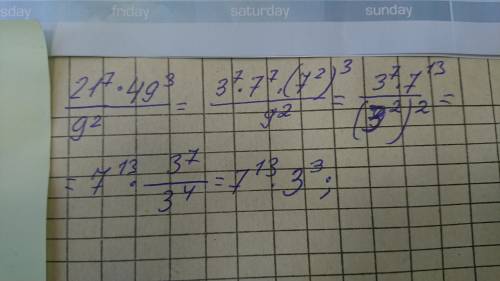 sday friday saturday sunday
21⁷·49³/9² = 3⁷·7⁷·(7²)³/9² = 3⁷·7¹³/(3²)² =
= 7¹³ · 3⁷/3⁴ = 7¹³ · 3³;